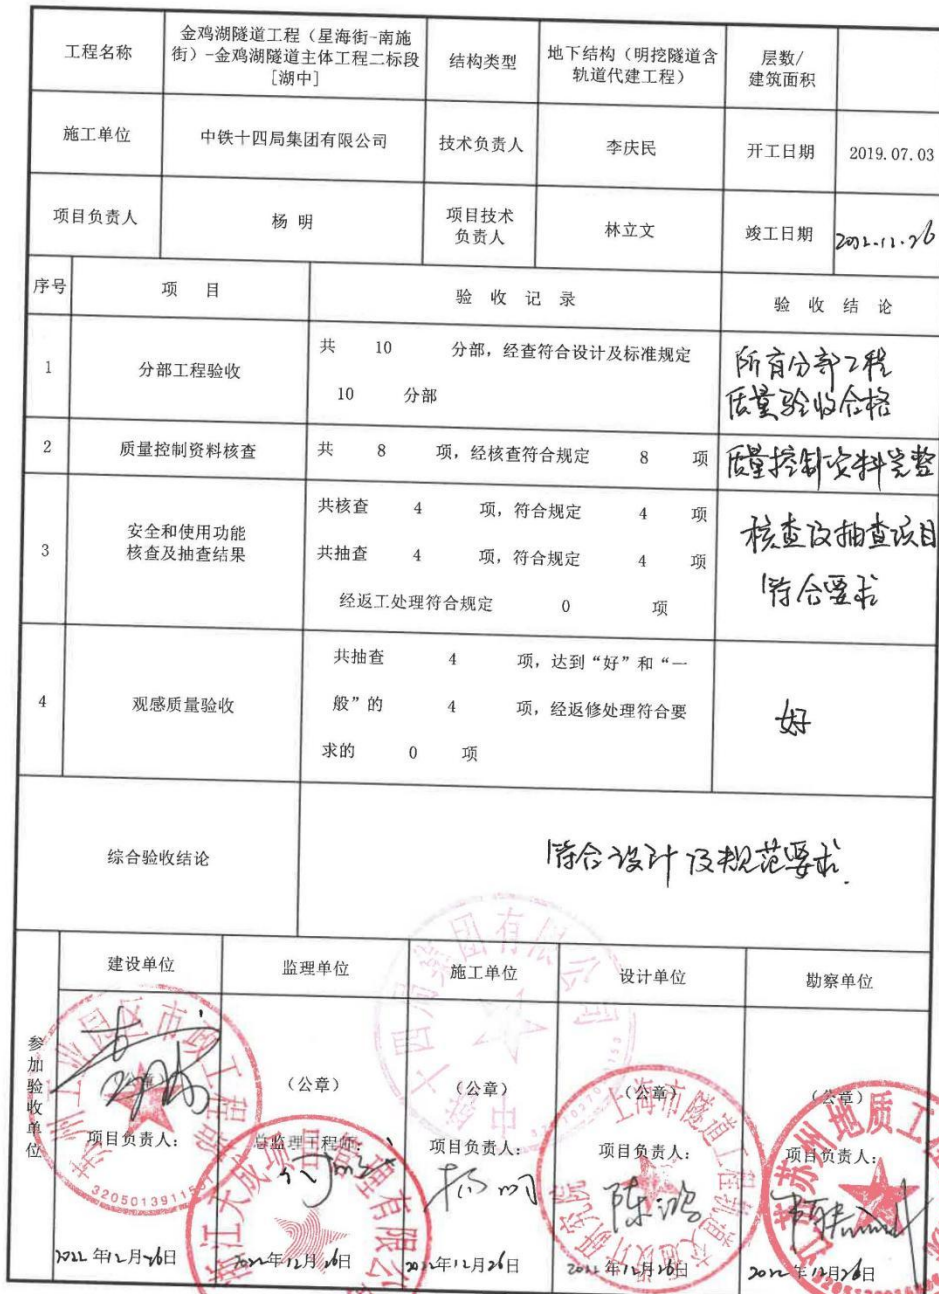 工程名称
金鸡湖隧道工程（星海街-南施
街）-金鸡湖隧道主体工程二标段
[湖中]
结构类型
地下结构（明挖隧道含
轨道代建工程）
层数/
建筑面积
施工单位
中铁十四局集团有限公司
技术负责人
李庆民
开工日期
2019.07.03
项目负责人
杨 明
项目技术
负责人
林立文
竣工日期
2022.12.26
序号
项 目
验 收 记 录
验 收 结 论
1
分部工程验收
共 10 分部，经查符合设计及标准规定
10 分部
所有分部工程
质量验收合格
2
质量控制资料核查
共 8 项，经核查符合规定 8 项
质量控制资料完整
3
安全和使用功能
核查及抽查结果
共核查 4 项，符合规定 4 项
共抽查 4 项，符合规定 4 项
经返工处理符合规定 0 项
核查及抽查项目
符合要求
4
观感质量验收
共抽查 4 项，达到“好”和“一
般”的 4 项，经返修处理符合要
求的 0 项
好
综合验收结论
符合设计及规范要求.
参加验收单位
建设单位
监理单位
施工单位
设计单位
勘察单位
（公章）
（公章）
（公章）
（公章）
（公章）
项目负责人：
总监理工程师：
项目负责人：
项目负责人：
项目负责人：
杨明
陈鸿
2022年12月26日
2022年12月26日
2022年12月26日
2022年12月26日
2022年12月26日